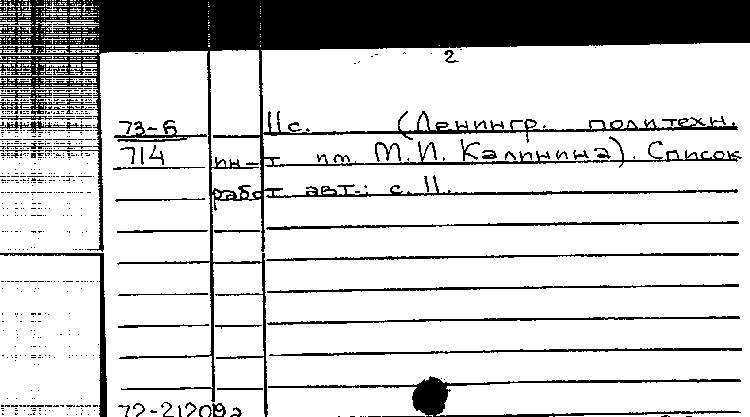 2
73-Б 11с. (Ленингр. политехн.
714 ин-т им. М.И. Калинина). Список
работ авт.: с. 11.
72-21209а